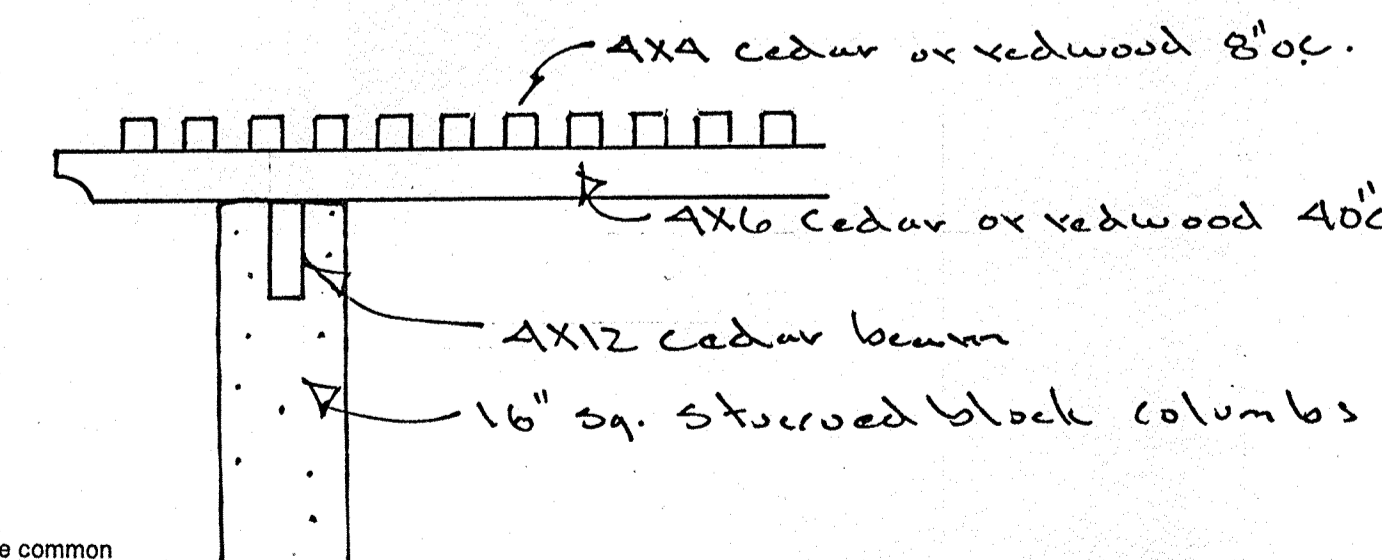 4x4 cedar or redwood 8"oc.
4x6 cedar or redwood 40"c
4x12 cedar beam
16" sq. stuccoed block columbs
e common